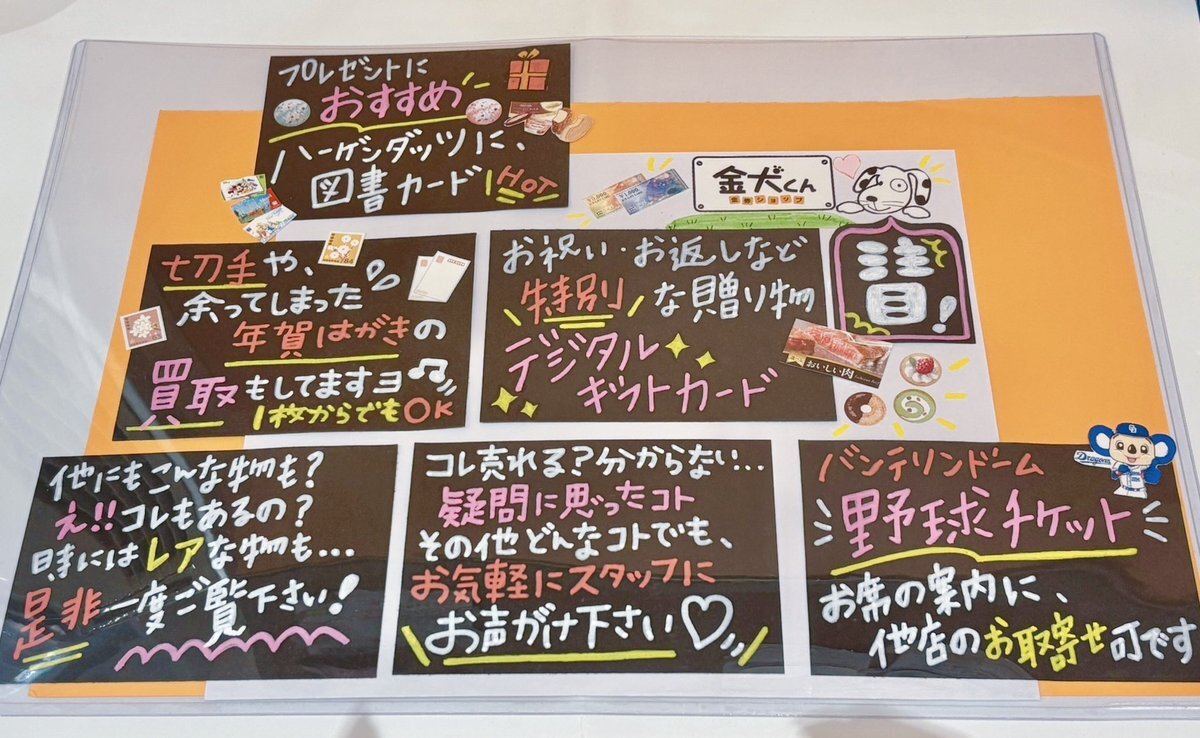 プレゼントに
おすすめ
ハーゲンダッツに、
図書カード HOT
金犬くん
金券ショップ
注目!
切手や、
余ってしまった
年賀はがきの
買取もしてますヨ
1枚からでもOK
84
お祝い・お返しなど
特別な贈り物
デジタル
ギフトカード
おいしい肉
¥1,000
他にもこんな物も?
え!!コレもあるの?
時にはレアな物も...
是非一度ご覧下さい!
コレ売れる?分からない...
疑問に思ったコト
その他どんなコトでも、
お気軽にスタッフに
お声がけ下さい♡
バンテリンドーム
野球チケット
Dragons
お席の案内に、
他店のお取寄せ可です